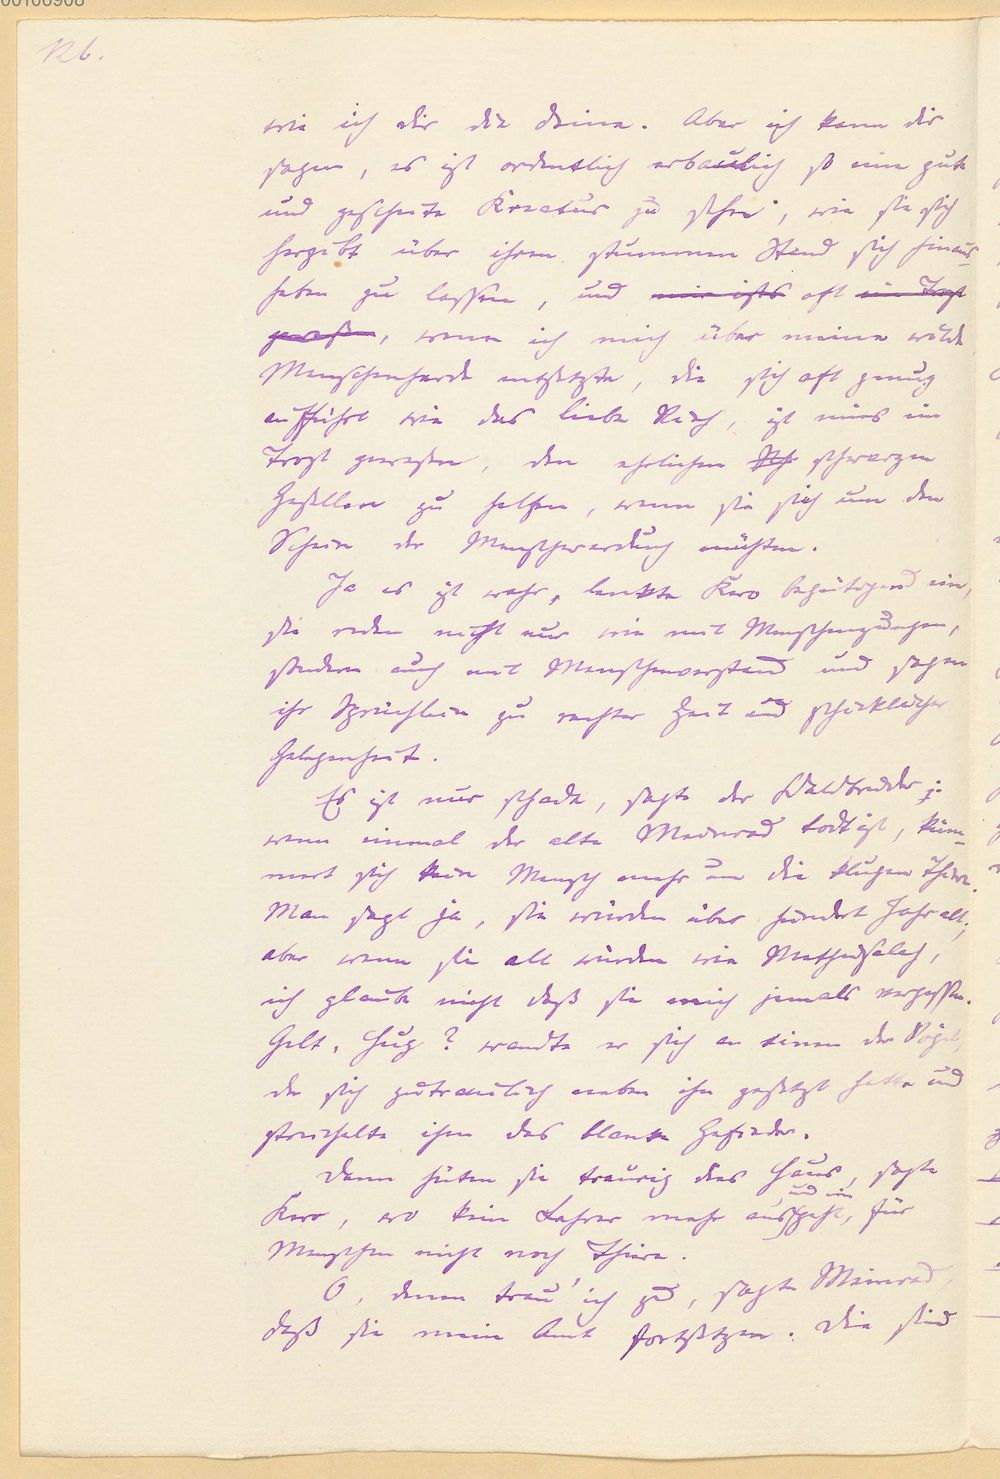 00106908
126.
wie ich dir die deine. Aber ich kann dir
sagen, es ist ordentlich erbaulich so eine gute
und gescheute Kreatur zu sehen, wie sie sich
hergibt über ihren stummen Stand sich hinaus-
heben zu lassen, und mir ists oft ein Trost
gewesen, wenn ich mich über meine wilde
Menschenherde entsetzte, die sich oft genug
aufführt wie das liebe Vieh, ist mirs ein
Trost gewesen, den ehrlichen Sch schwarzen
Gesellen zu helfen, wenn sie sich um den
Schein der Menschwerdung mühten.
Ja es ist wahr, lenkte Karo begütigend ein,
sie reden nicht nur wie mit Menschenzungen,
sondern auch mit Menschenverstand und sagen
ihr Sprüchlein zu rechter Zeit und schicklicher
Gelegenheit.
Es ist nur schade, sagte der Waldbruder;
wenn einmal der alte Meinrad todt ist, küm-
mert sich kein Mensch mehr um die klugen Thiere.
Man sagt ja, sie würden über hundert Jahr alt;
aber wenn sie alt würden wie Methusalah,
ich glaube nicht daß sie mich jemals vergessen.
Gelt, Hug? wandte er sich an einen der Vögel,
der sich zutraulich neben ihn gesetzt hatte und
streichelte ihm das blanke Gefieder.
Dann hüten sie traurig das Haus, sagte
Karo, wo kein Lehrer mehr aus und ein geht, für
Menschen nicht noch Thiere.
O, denen trau' ich zu, sagte Meinrad,
daß sie mein Amt fortsetzen. Die sind